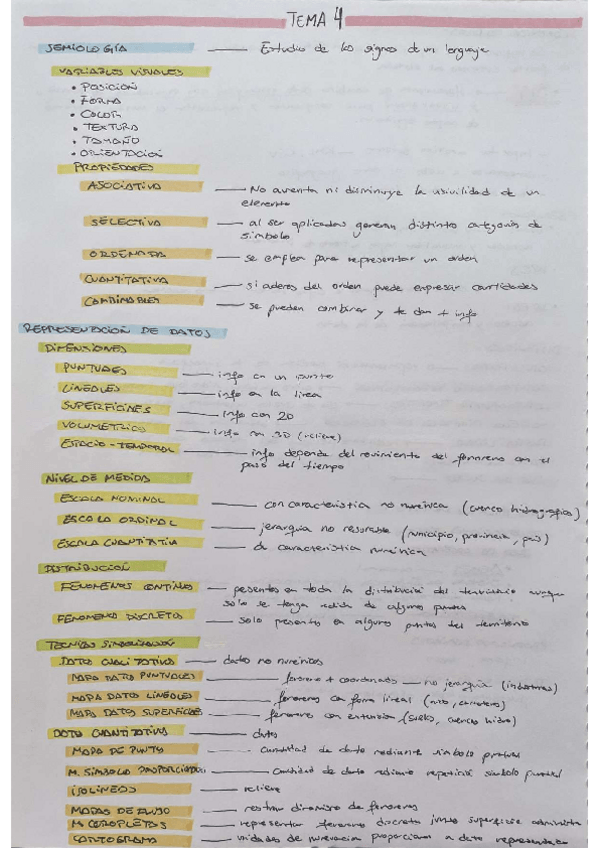 TEMA 4
SEMIOLOGÍA — Estudio de los signos de un lenguaje
VARIABLES VISUALES
• POSICION
• FORMA
• COLOR
• TEXTURA
• TAMAÑO
• ORIENTACION
PROPIEDADES
ASOCIATIVA — No aumenta ni disminuye la visivilidad de un
elemento
SELECTIVA — al ser aplicadas generan distinta categoria de
simbolo
ORDENADA — se emplea para representar un orden
CUANTITATIVA — si ademas del orden puede expresar cantidades
COMBINABLES — se pueden combinar y te dan + info
REPRESENTACION DE DATOS
DIMENSIONES
PUNTUALES — info en un punto
LINEALES — info en la linea
SUPERFICINES — info con 2D
VOLUMETRICO — info con 3D (relieve)
ESPACIO-TEMPORAL — info depende del movimiento del fenomeno con el
paso del tiempo
NIVEL DE MEDIDA
ESCALA NOMINAL — con caracteristica no numérica (cuenca hidrografica)
ESCALA ORDINAL — jerarquia no mesurable (municipio, provincia, pais)
ESCALA CUANTITATIVA — da caracteristica numérica
DISTRIBUCIÓN
FENOMENOS CONTINUO — presentes en toda la distribución del territorio aunque
solo se tenga medida de algunos puntos
FENOMENO DISCRETOS — solo presentes en algunos puntos del territorio
TECNICAS SIMBOLIZACION
DATOS CUALITATIVOS — datos no numéricos
MAPA DATO PUNTUALES — fenomeno + coordenadas — no jerarquia (industrias)
MAPA DATOS LINEALES — fenomenos con forma lineal (rios, carreteras)
MAPA DATOS SUPERFICIES — fenomenos con extension (suelo, cuenca hidro)
DATO CUANTITATIVOS — datos
MAPA DE PUNTOS — cantidad de dato mediante simbolo puntual
M. SIMBOLO PROPORCIONAL — cantidad de dato mediante repetición simbolo puntual
ISOLINEAS — relieve
MAPAS DE FLUJO — mostrar dinamismo de fenomenos
M COROPLETOS — representar fenomeno discreto junto superficie administra
CARTOGRAMA — unidades de numeracion proporcionan a dato representado